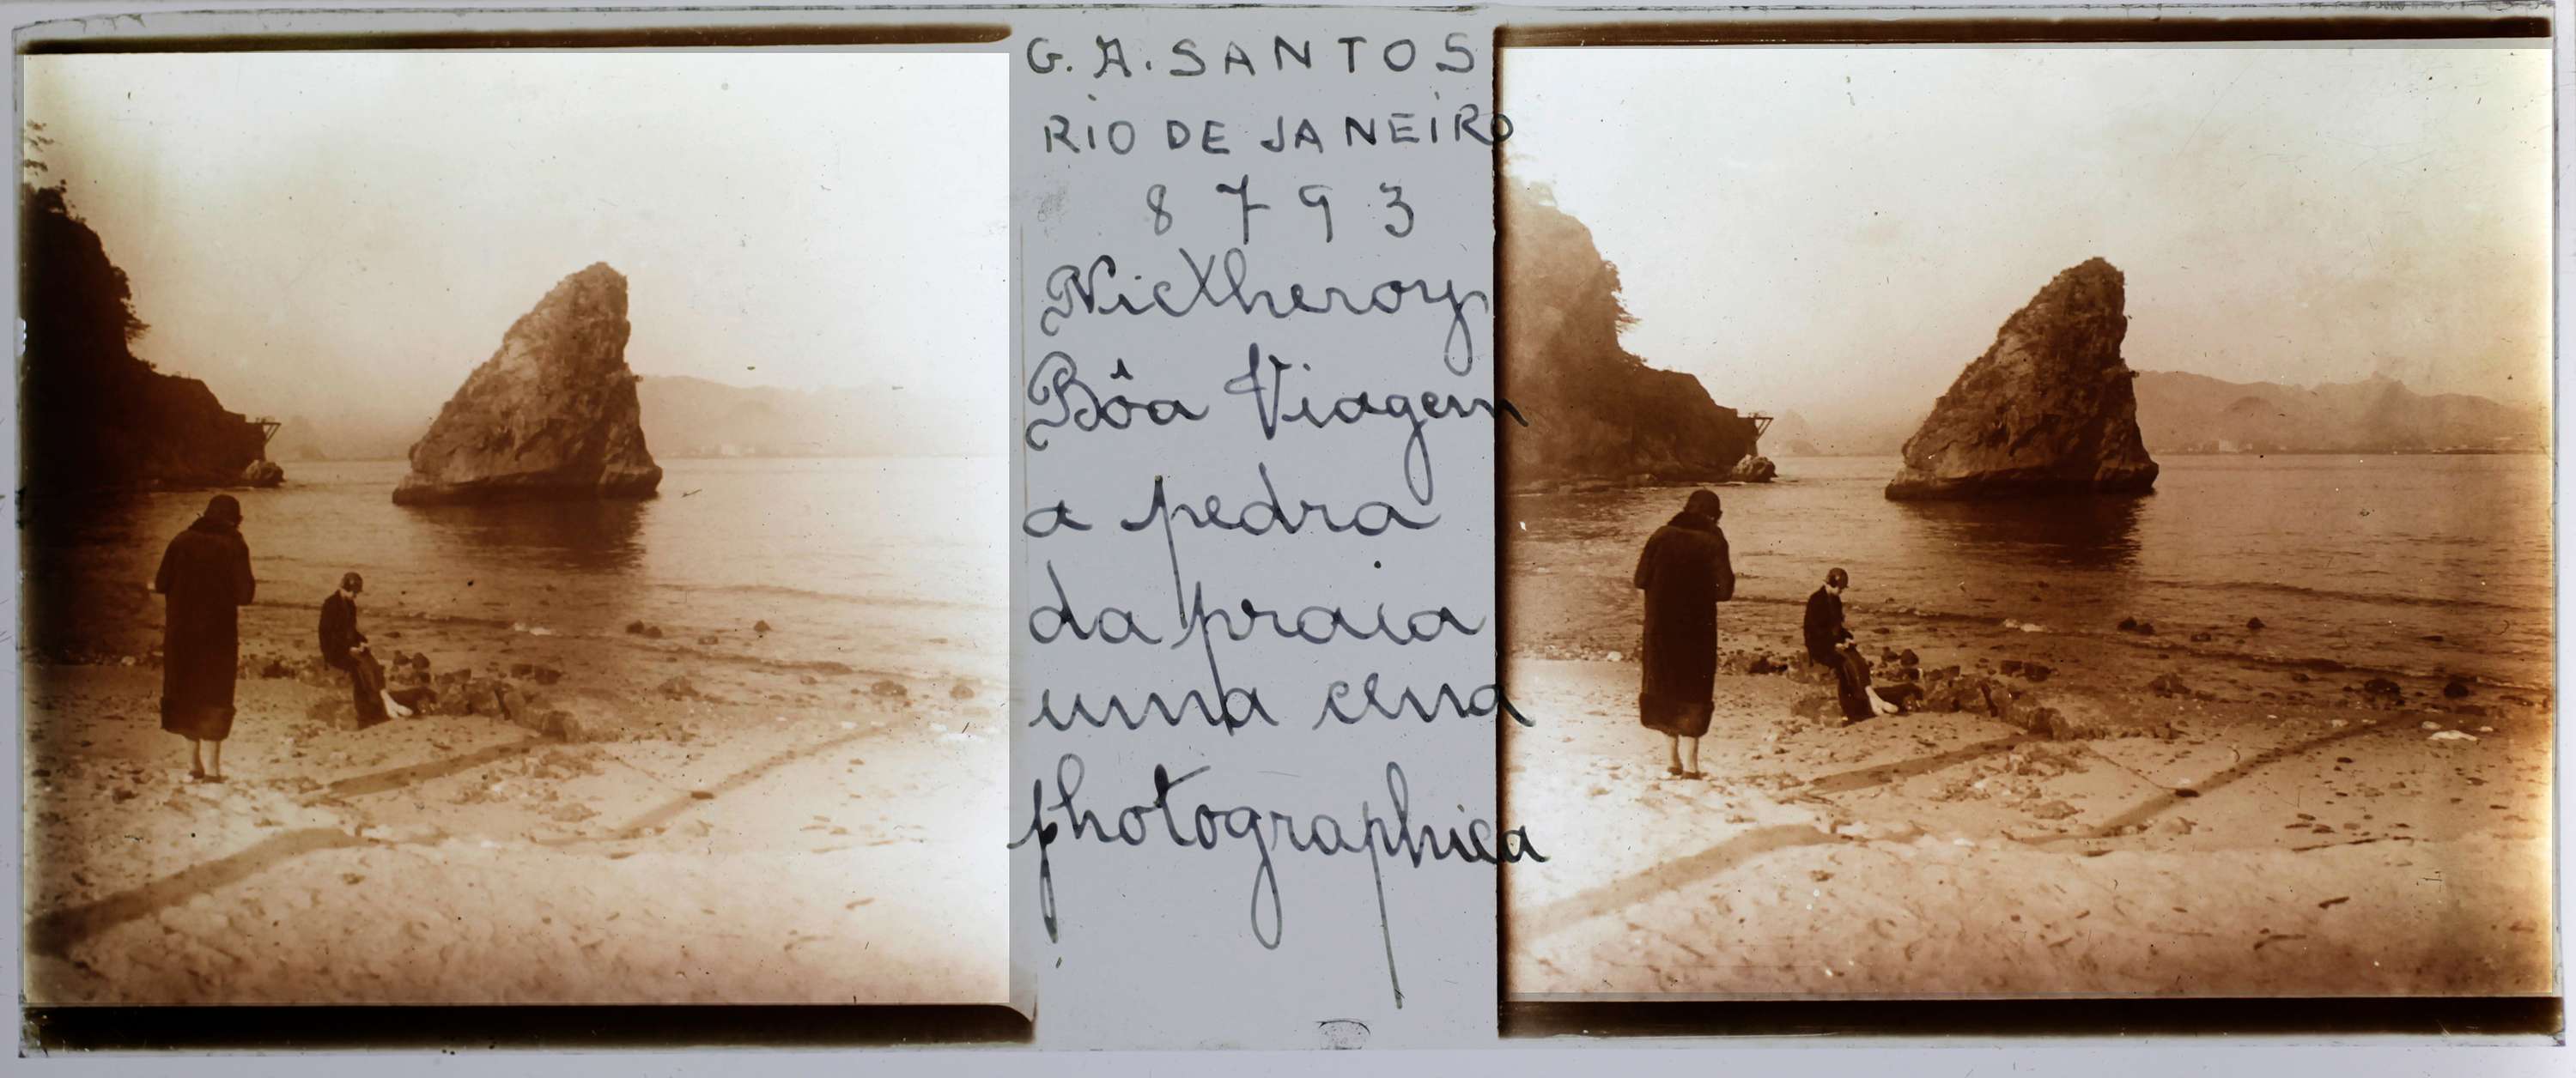 G. A. SANTOS
RIO DE JANEIRO
8793
Nictheroy
Bôa Viagem
a pedra
da praia
uma cena
photographica